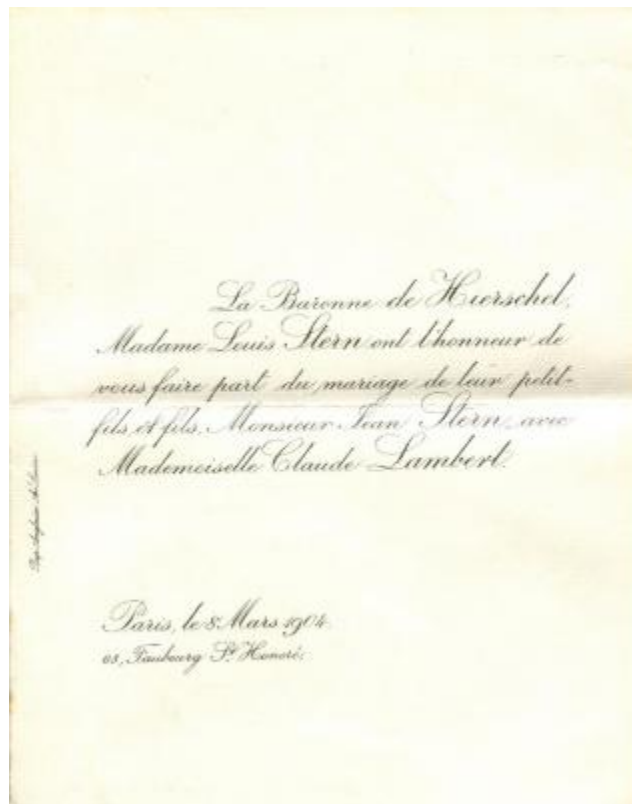 La Baronne de Hierschel,
Madame Louis Stern ont l'honneur de
vous faire part du mariage de leur petit-
fils et fils, Monsieur Jean Stern, avec
Mademoiselle Claude Lambert.
Paris, le 8 Mars 1904.
Faubourg St Honoré.